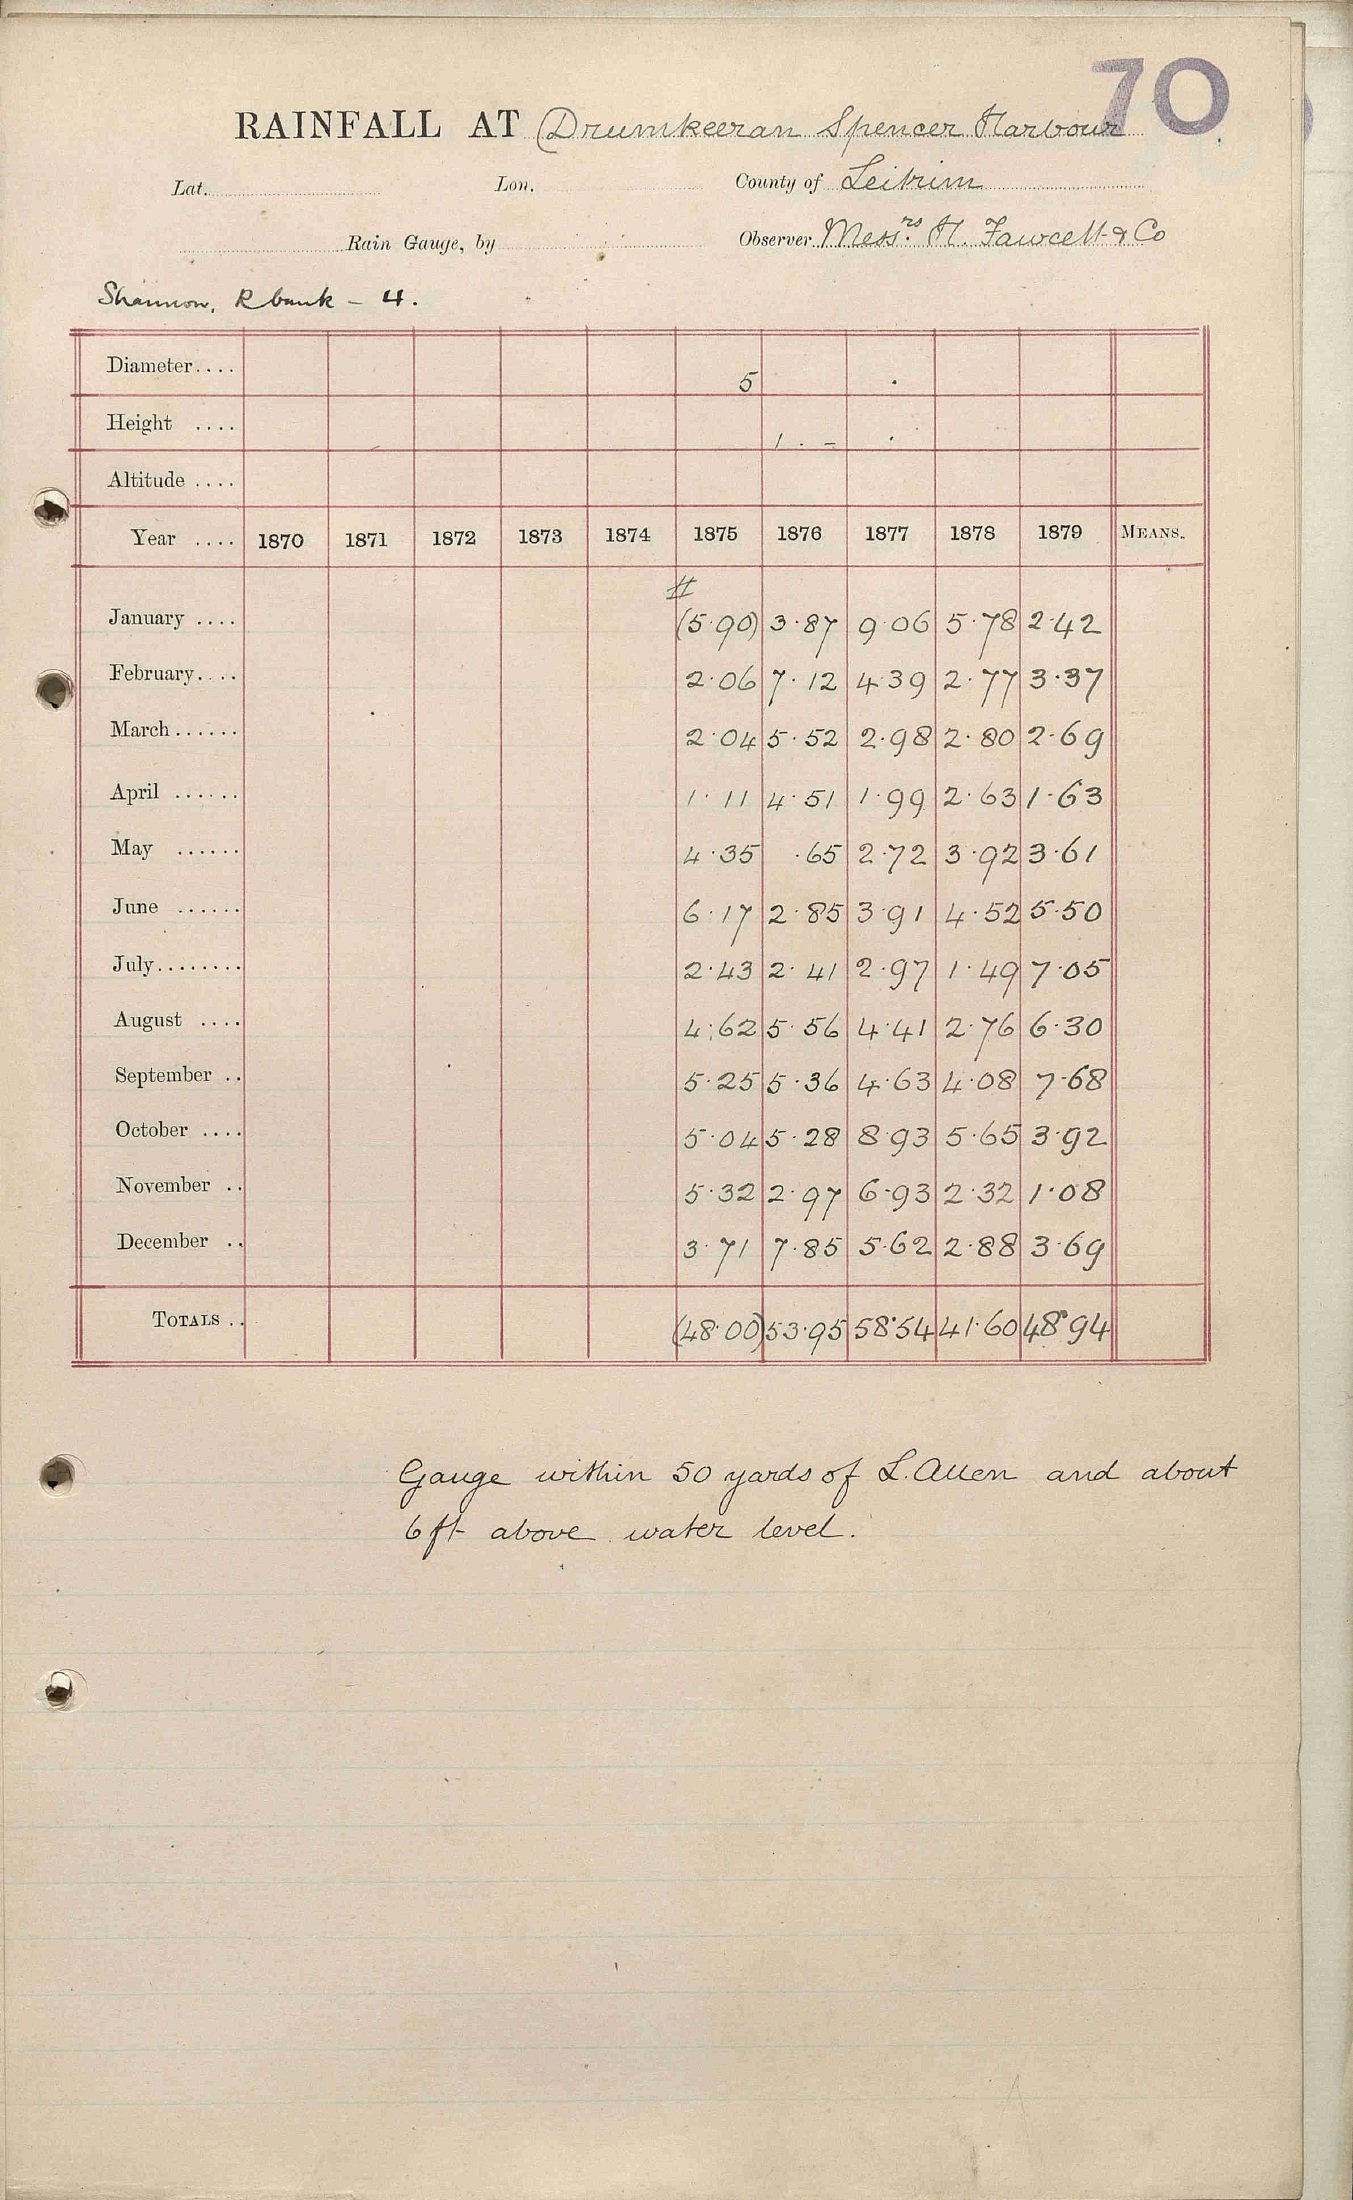 70
RAINFALL AT (Drumkeeran Spencer Harbour
Lat. Lon. County of Leitrim
Rain Gauge, by Observer Messrs. H. Fawcett & Co
Shannon, R bank - 4.
Diameter.... 5
Height .... 1 . -
Altitude ....
Year .... 1870 1871 1872 1873 1874 1875 1876 1877 1878 1879 MEANS.
#
January .... (5.90) 3.87 9.06 5.78 2.42
February.... 2.06 7.12 4.39 2.77 3.37
March...... 2.04 5.52 2.98 2.80 2.69
April ...... 1.11 4.51 1.99 2.63 1.63
May ...... 4.35 .65 2.72 3.92 3.61
June ...... 6.17 2.85 3.91 4.52 5.50
July........ 2.43 2.41 2.97 1.49 7.05
August .... 4.62 5.56 4.41 2.76 6.30
September .. 5.25 5.36 4.63 4.08 7.68
October .... 5.04 5.28 8.93 5.65 3.92
November .. 5.32 2.97 6.93 2.32 1.08
December .. 3.71 7.85 5.62 2.88 3.69
TOTALS .. (48.00) 53.95 58.54 41.60 48.94
Gauge within 50 yards of L. Allen and about
6 ft above water level.